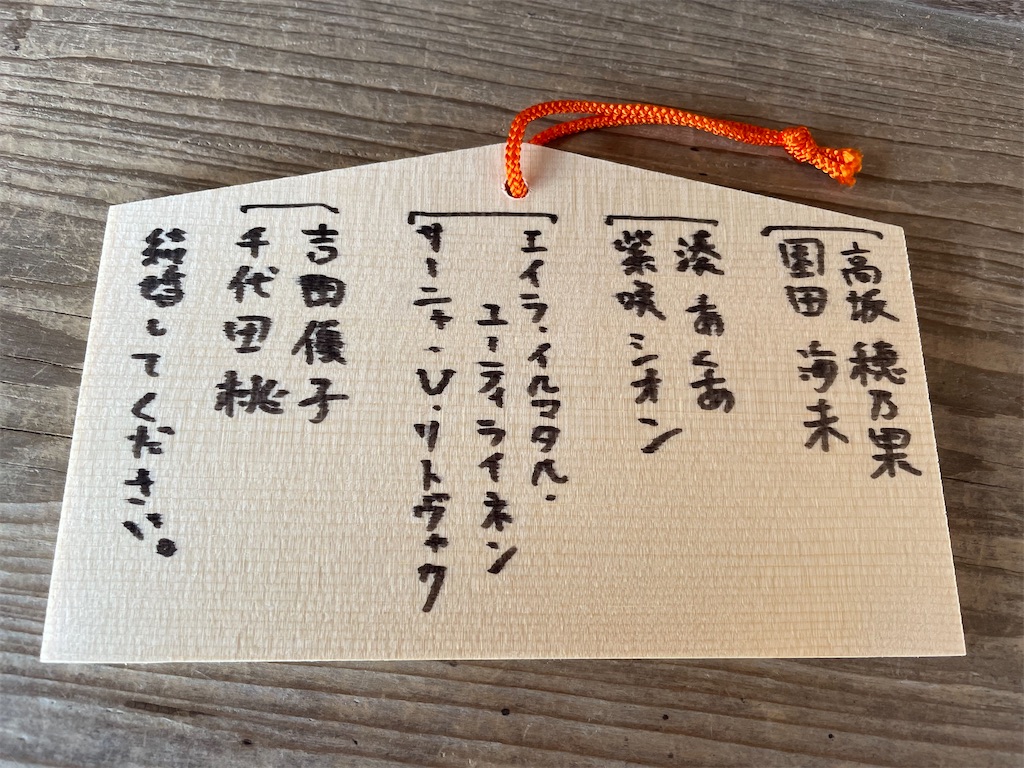 高坂 穂乃果
園田 海未
湊 あくあ
紫咲 シオン
エイラ・イルマタル・
ユーティライネン
サーニャ・V・リトヴャク
吉田優子
千代田 桃
結婚してください。